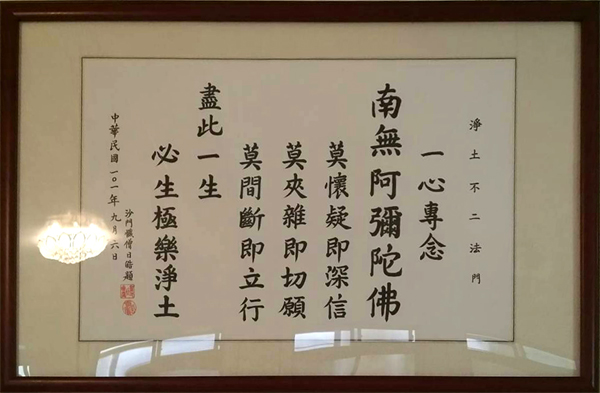 淨土不二法門
一心專念
南無阿彌陀佛
莫懷疑即深信
莫夾雜即切願
莫間斷即立行
盡此一生
必生極樂淨土
中華民國一〇一年九月六日
沙門 僧日 題